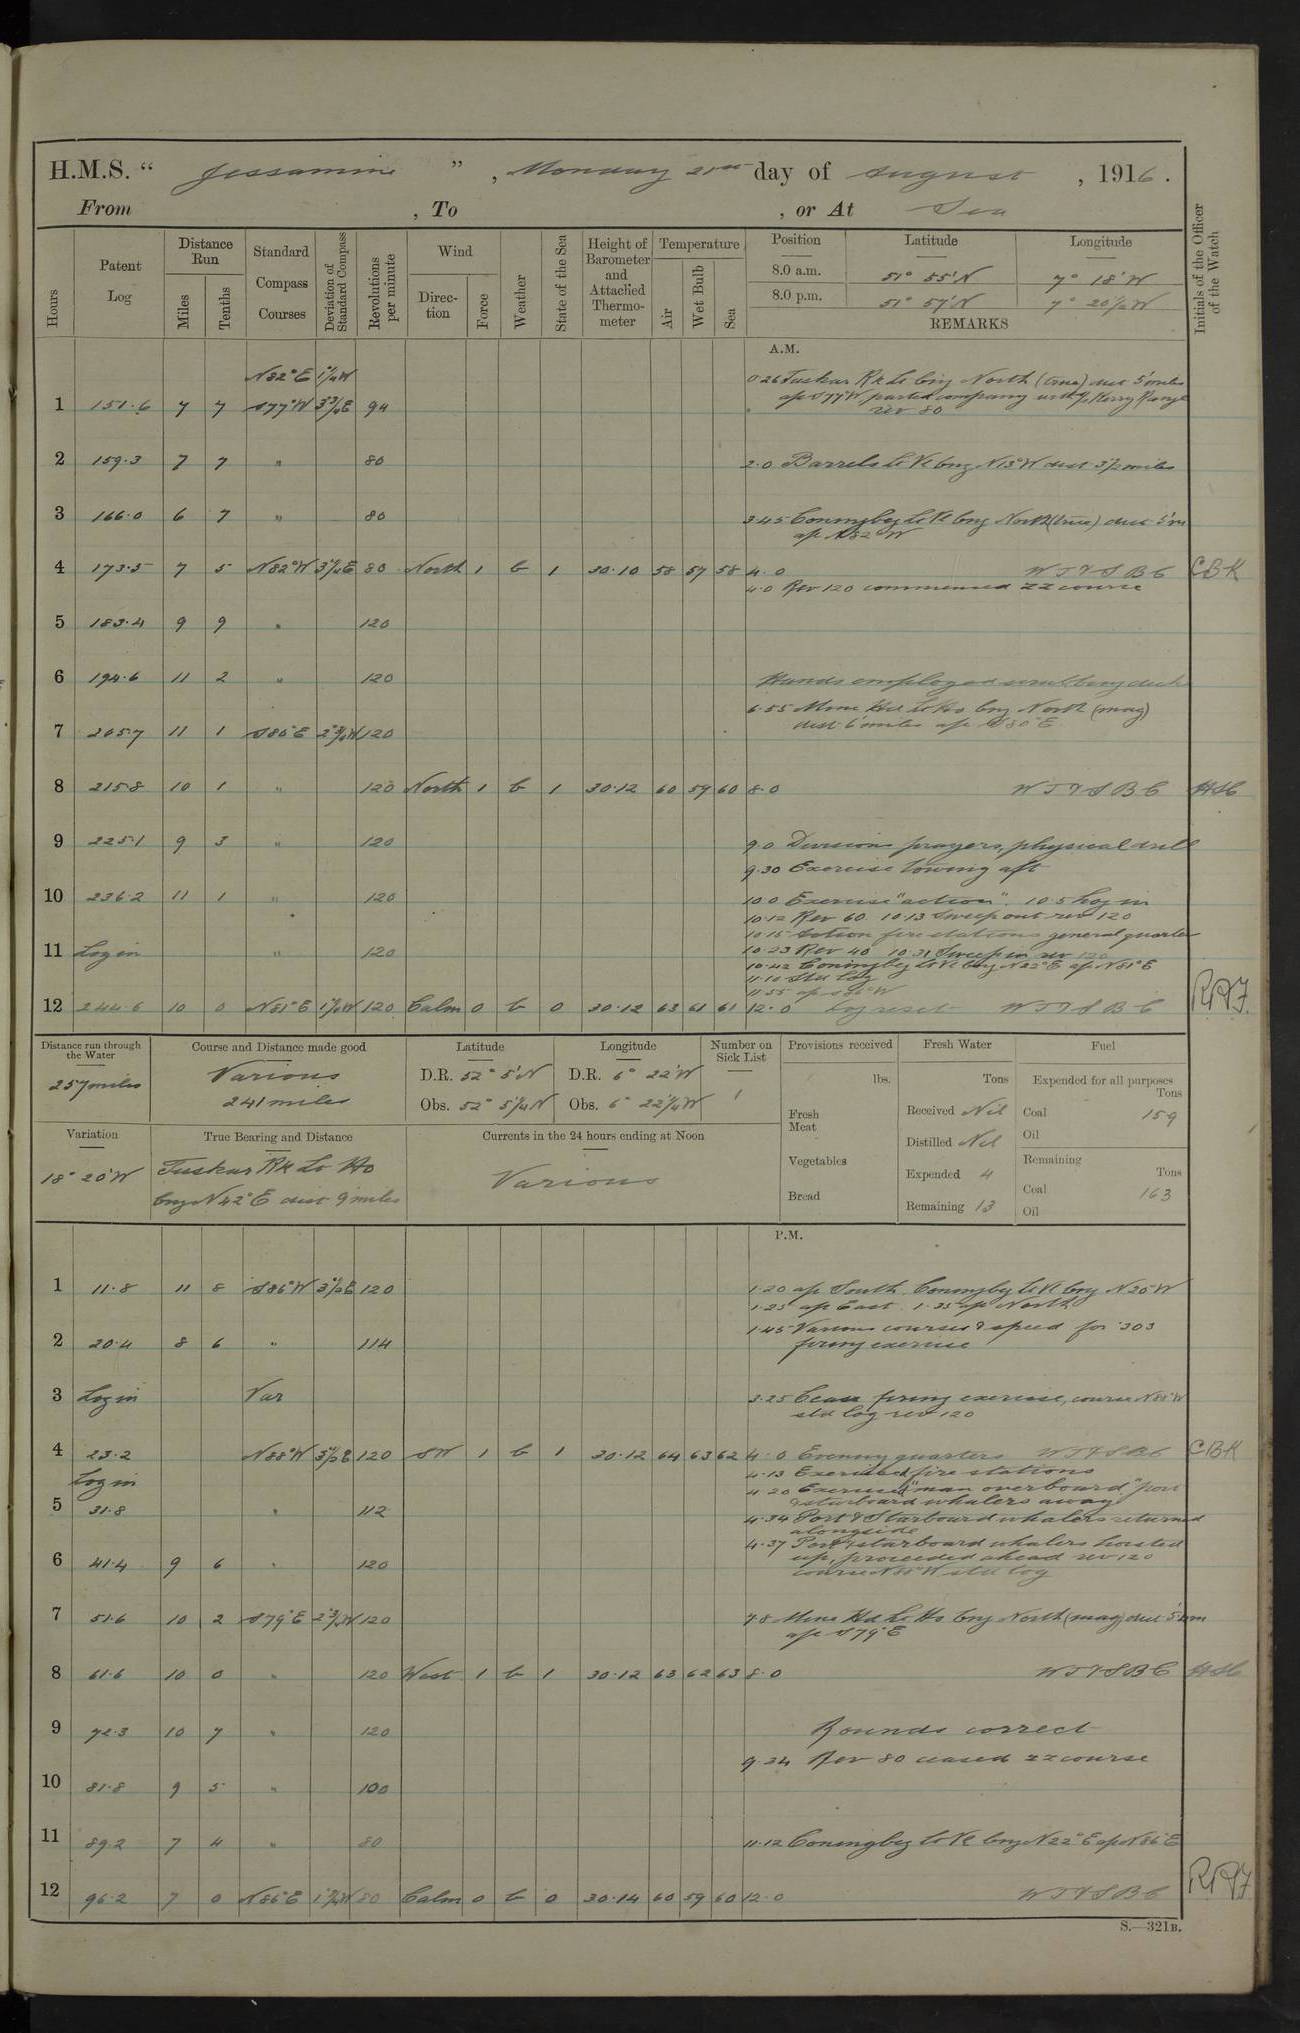 H.M.S. “ Jessamine ” , Monday 21st day of August , 1916.
From , To , or At Sea
Hours
Patent Log
Distance Run
Miles
Tenths
Standard Compass Courses
Deviation of Standard Compass
Revolutions per minute
Wind
Direc-tion
Force
Weather
State of the Sea
Height of Barometer and Attached Thermo-meter
Temperature
Air
Wet Bulb
Sea
Position Latitude Longitude
8.0 a.m. 51° 55' N 7° 18' W
8.0 p.m. 51° 57' N 7° 20½ W
REMARKS
Initials of the Officer of the Watch
A.M.
N82°E 1¼W 0.26 Tuskar Rk Lt brg North (true) dist 5' miles
1 151.6 7 7 S77°W 3¾E 94 a/c S77°W parted company with
rev 80
2 159.3 7 7 " 80 2.0 Barrels Lt Vl brg N13°W dist 3½ miles
3 166.0 6 7 " 80 3.45 Coningbeg Lt Vl brg North (true) dist 5'm
a/c N82°W
4 173.5 7 5 N82°W 3¼E 80 North 1 b 1 30.10 58 57 58 4.0 W T & S B C CBK
4.0 Rev 120 commenced ZZ course
5 183.4 9 9 " 120
6 194.6 11 2 " 120 Hands employed scrubbing decks
6.55 Mine Hd Lt Ho brg North (mag)
7 205.7 11 1 S80°E 2¾W 120 dist 6 miles a/c S80°E
8 215.8 10 1 " 120 North 1 b 1 30.12 60 59 60 8.0 W T & S B C
9 225.1 9 3 " 120 9.0 Divisions prayers, physical drill
9.30 Exercise towing aft
10 236.2 11 1 " 120 10.0 Exercise "action". 10.5 Log in
10.12 Rev 60. 10.13 Sweep out rev 120
10.15 Action fire stations general quarter
11 Log in " 120 10.23 Rev 40 10.31 Sweep in rev 120
10.42 Coningbeg Lt Vl brg N22°E a/c N81°E
11.10 Std Log
11.55 a/c S86°W
12 244.6 10 0 N81°E 1½W 120 Calm 0 b 0 30.12 63 61 61 12.0 Log reset W T & S B C
Distance run through the Water
257 miles
Course and Distance made good
Various
241 miles
Latitude
D.R. 52° 5' N
Obs. 52° 5¼ N
Longitude
D.R. 6° 22' W
Obs. 6° 22¼ W
Number on Sick List
1
Provisions received
lbs.
Fresh Meat
Vegetables
Bread
Fresh Water
Tons
Received Nil
Distilled Nil
Expended 4
Remaining 13
Fuel
Expended for all purposes
Tons
Coal 159
Oil
Remaining
Tons
Coal 163
Oil
Variation
18° 20' W
True Bearing and Distance
Tuskar Rk Lt Ho
brg N42°E dist 9' miles
Currents in the 24 hours ending at Noon
Various
P.M.
1 11.8 11 8 S86°W 3½E 120 1.20 a/c South. Coningbeg Lt Vl brg N25W
1.25 a/c East. 1.35 a/c North
2 20.4 8 6 " 114 1.45 Various courses & speed for .303
firing exercise
3 Log in Var 3.25 Cease firing exercise, course N88°W
std log rev 120
4 23.2 N88°W 3½E 120 SW 1 b 1 30.12 64 63 62 4.0 Evening quarters W T & S B C CBK
Log in 4.13 Exercised fire stations
4.20 Exercised "man overboard" port
5 31.8 " 112 & starboard whalers away
4.34 Port & Starboard whalers returned
alongside
4.37 Port & starboard whalers hoisted
6 41.4 9 6 " 120 up, proceeded ahead rev 120
course N88°W std log
7 51.6 10 2 S79°E 2¾W 120 7.8 Mine Hd Lt Ho brg North (mag) dist 5'm
a/c S79°E
8 61.6 10 0 " 120 West 1 b 1 30.12 63 62 63 8.0 W T & S B C
9 72.3 10 7 " 120 Rounds correct
9.34 Rev 80 ceased ZZ course
10 81.8 9 5 " 100
11 89.2 7 4 " 80 11.12 Coningbeg Lt Vl brg N22°E a/c N86°E
12 96.2 7 0 N86°E 1½W 80 Calm 0 b 0 30.14 60 59 60 12.0 W T & S B C
S.—321B.